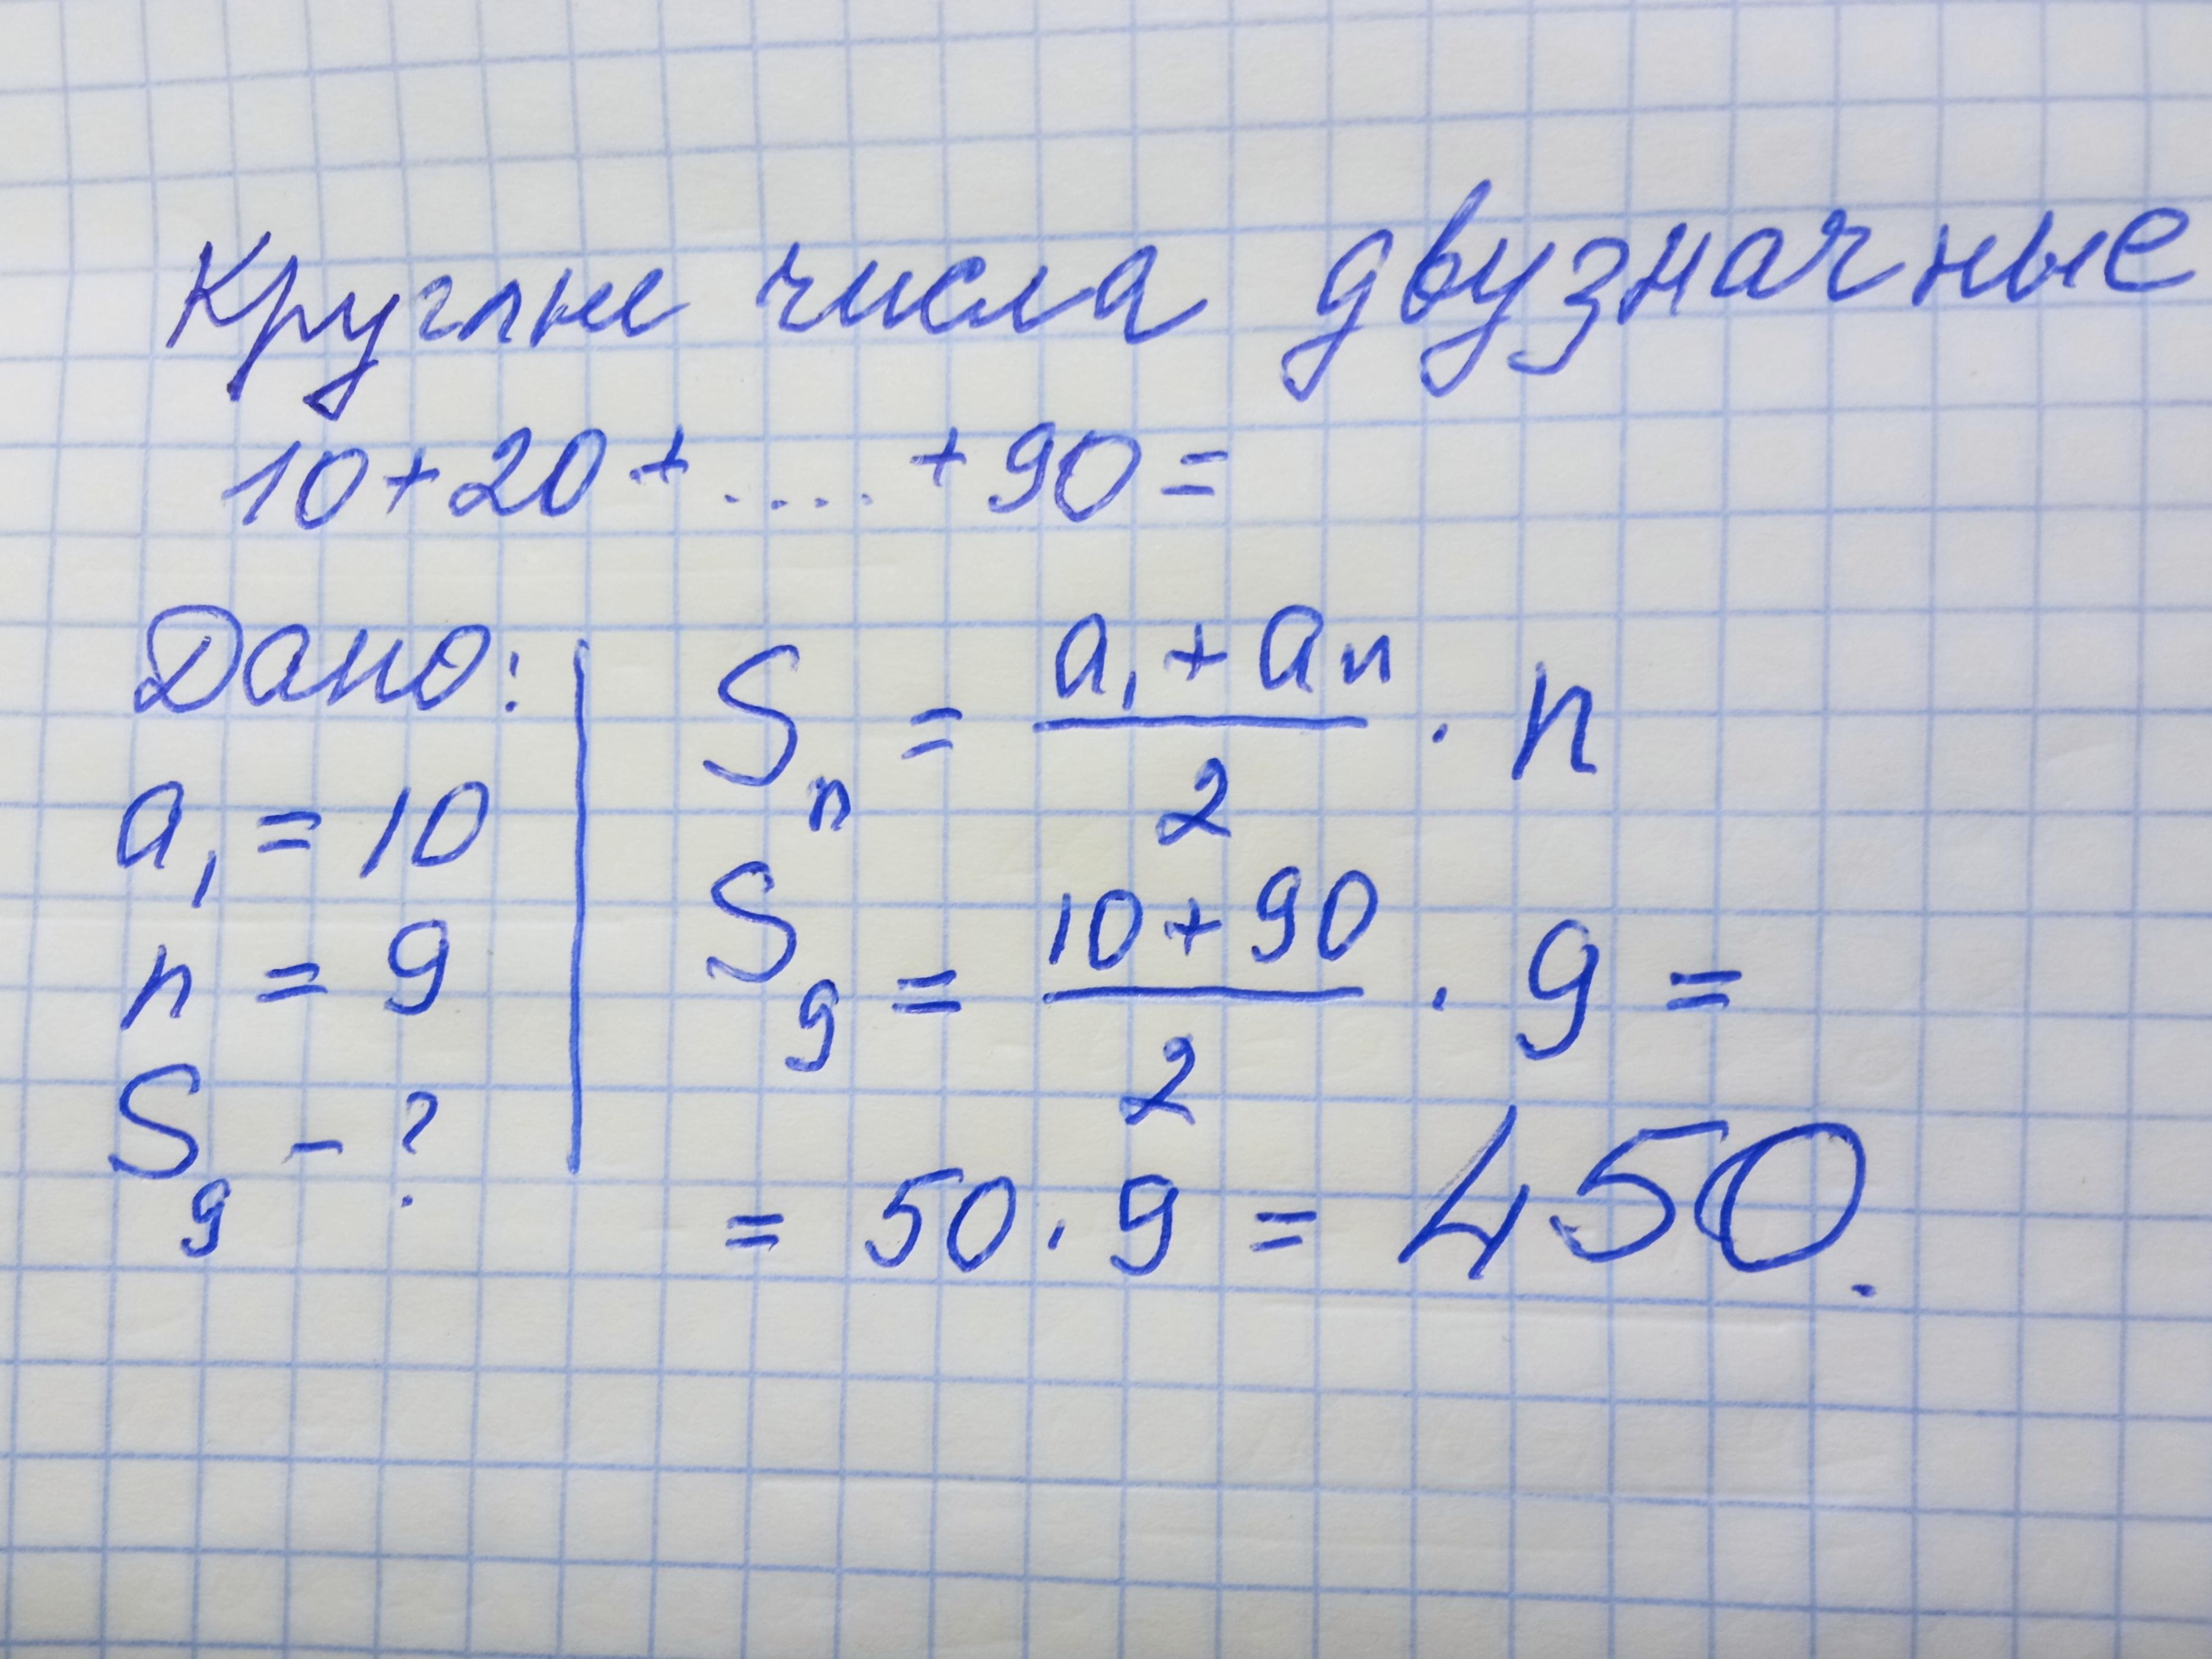 Круглые числа двузначные
10+20+....+90=
Дано:
a₁ = 10
n = 9
S₉ - ?
Sₙ = (a₁ + aₙ)/2 · n
S₉ = (10+90)/2 · 9 =
= 50 · 9 = 450.